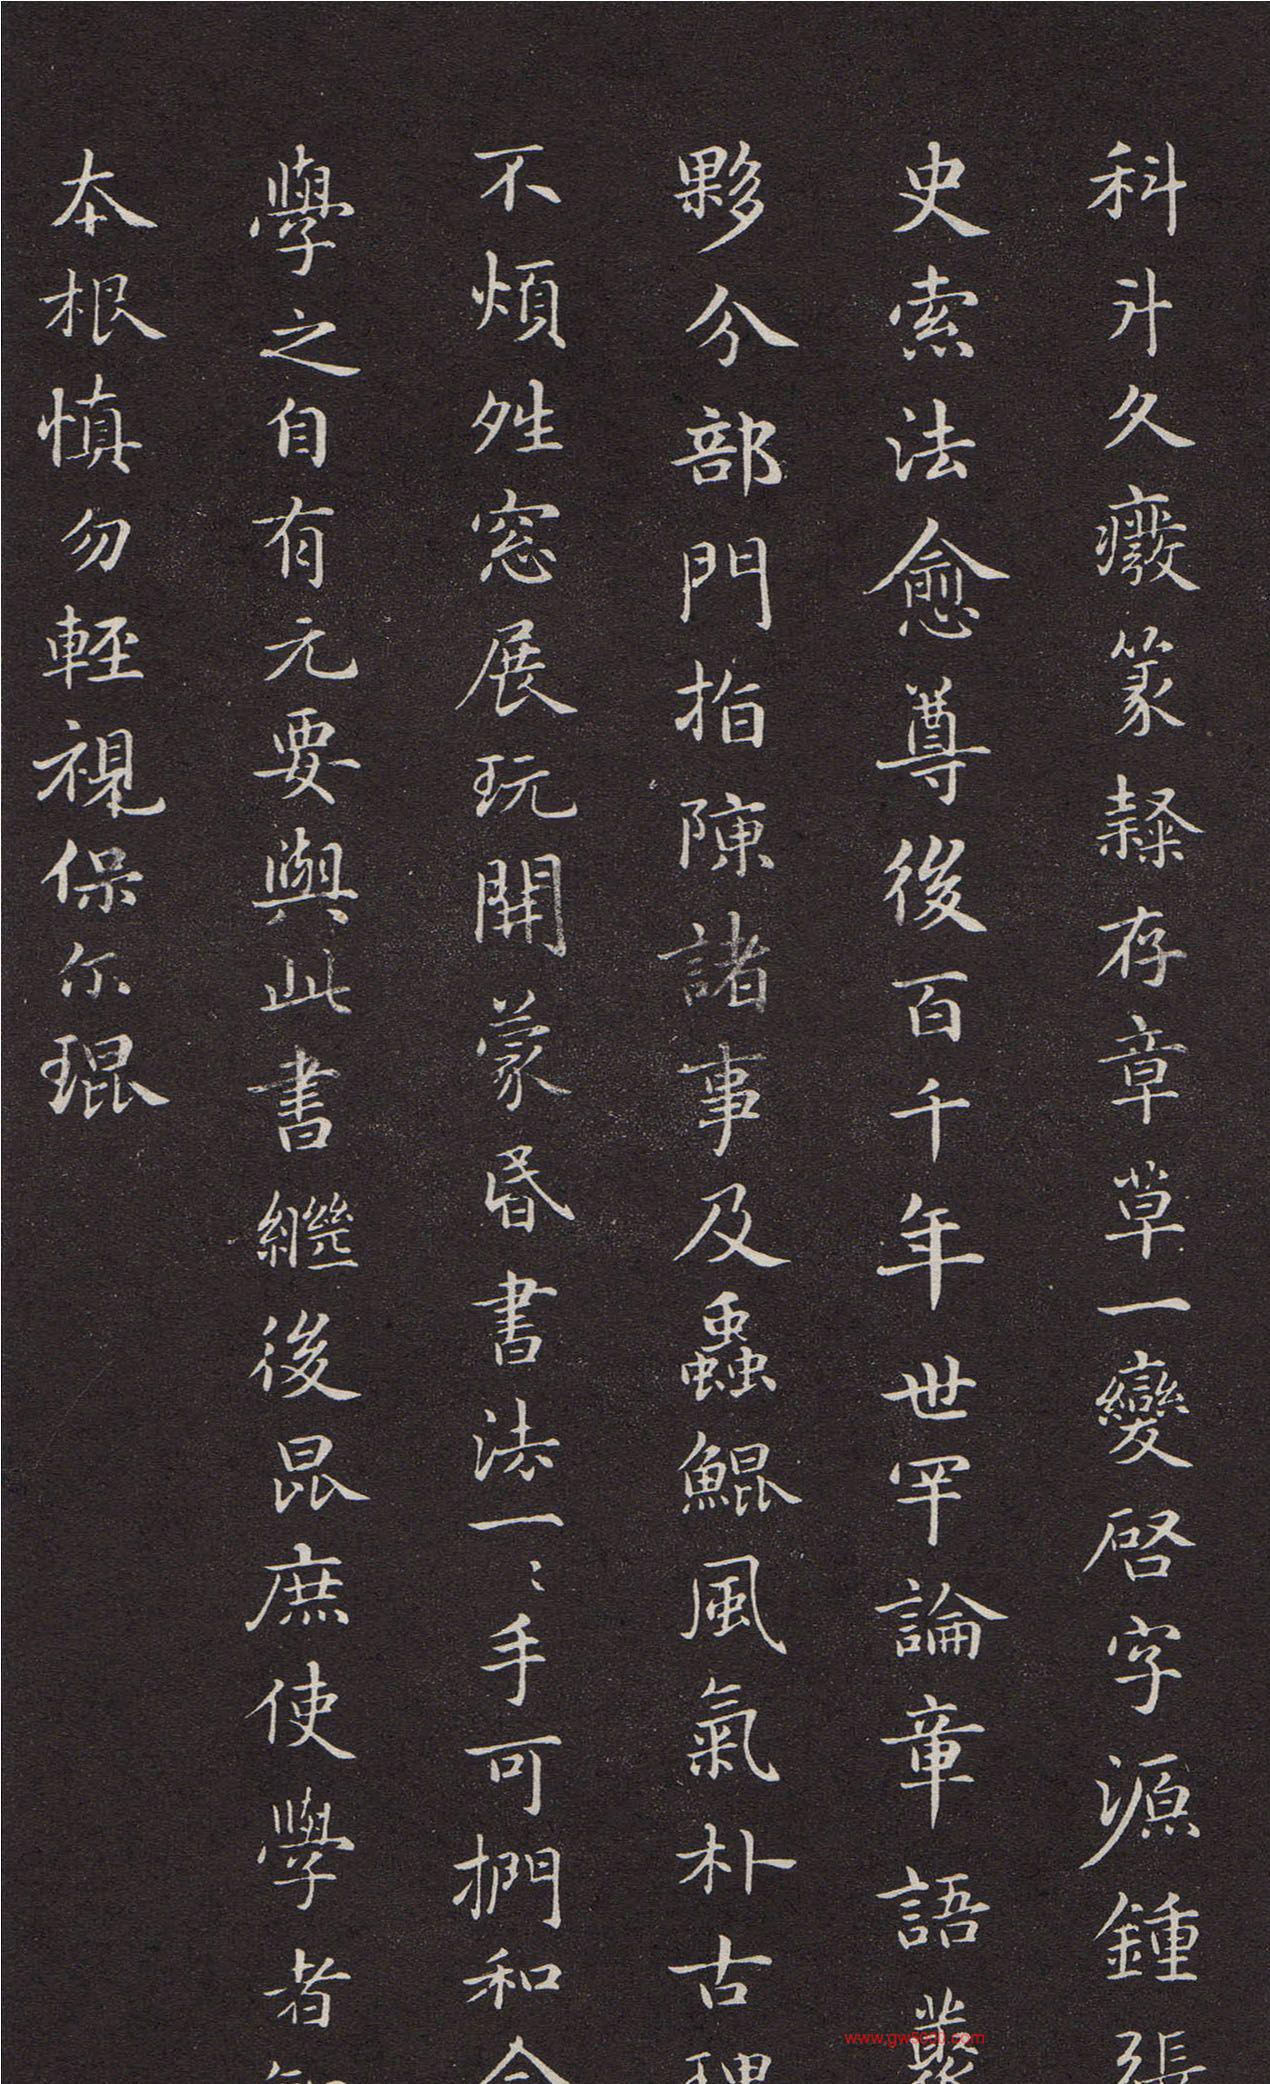 科斗久癈篆隸存章草一變啓字源鍾張
史索法愈尊後百千年世罕論章語叢
夥分部門指陳諸事及蟲鯤風氣朴古理
不煩姓窓展玩開蒙昏書法一〻手可捫和令
學之自有元要與此書繼後昆庶使學者知
本根慎勿輕視保尓琨
www.gw5000.com